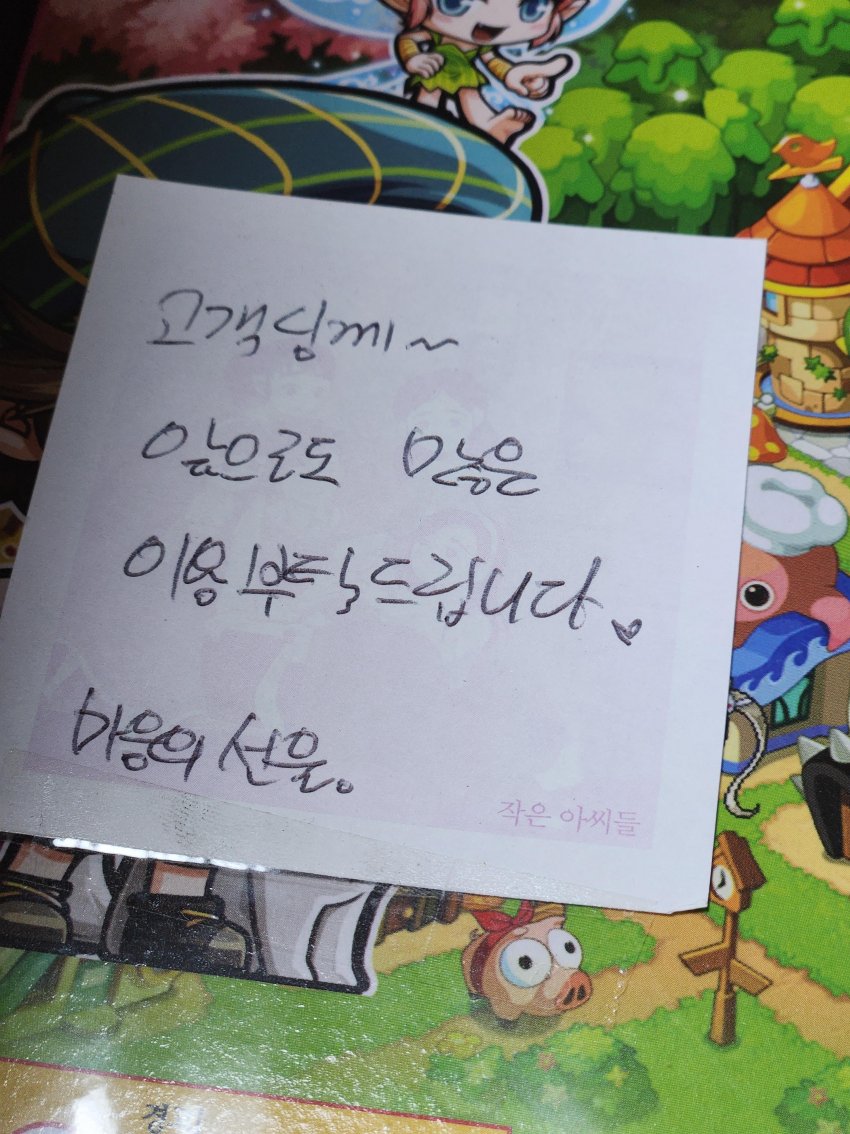 고객님께~
앞으로도 많은
이용부탁드립니다♥
마음의 선물.
작은 아씨들